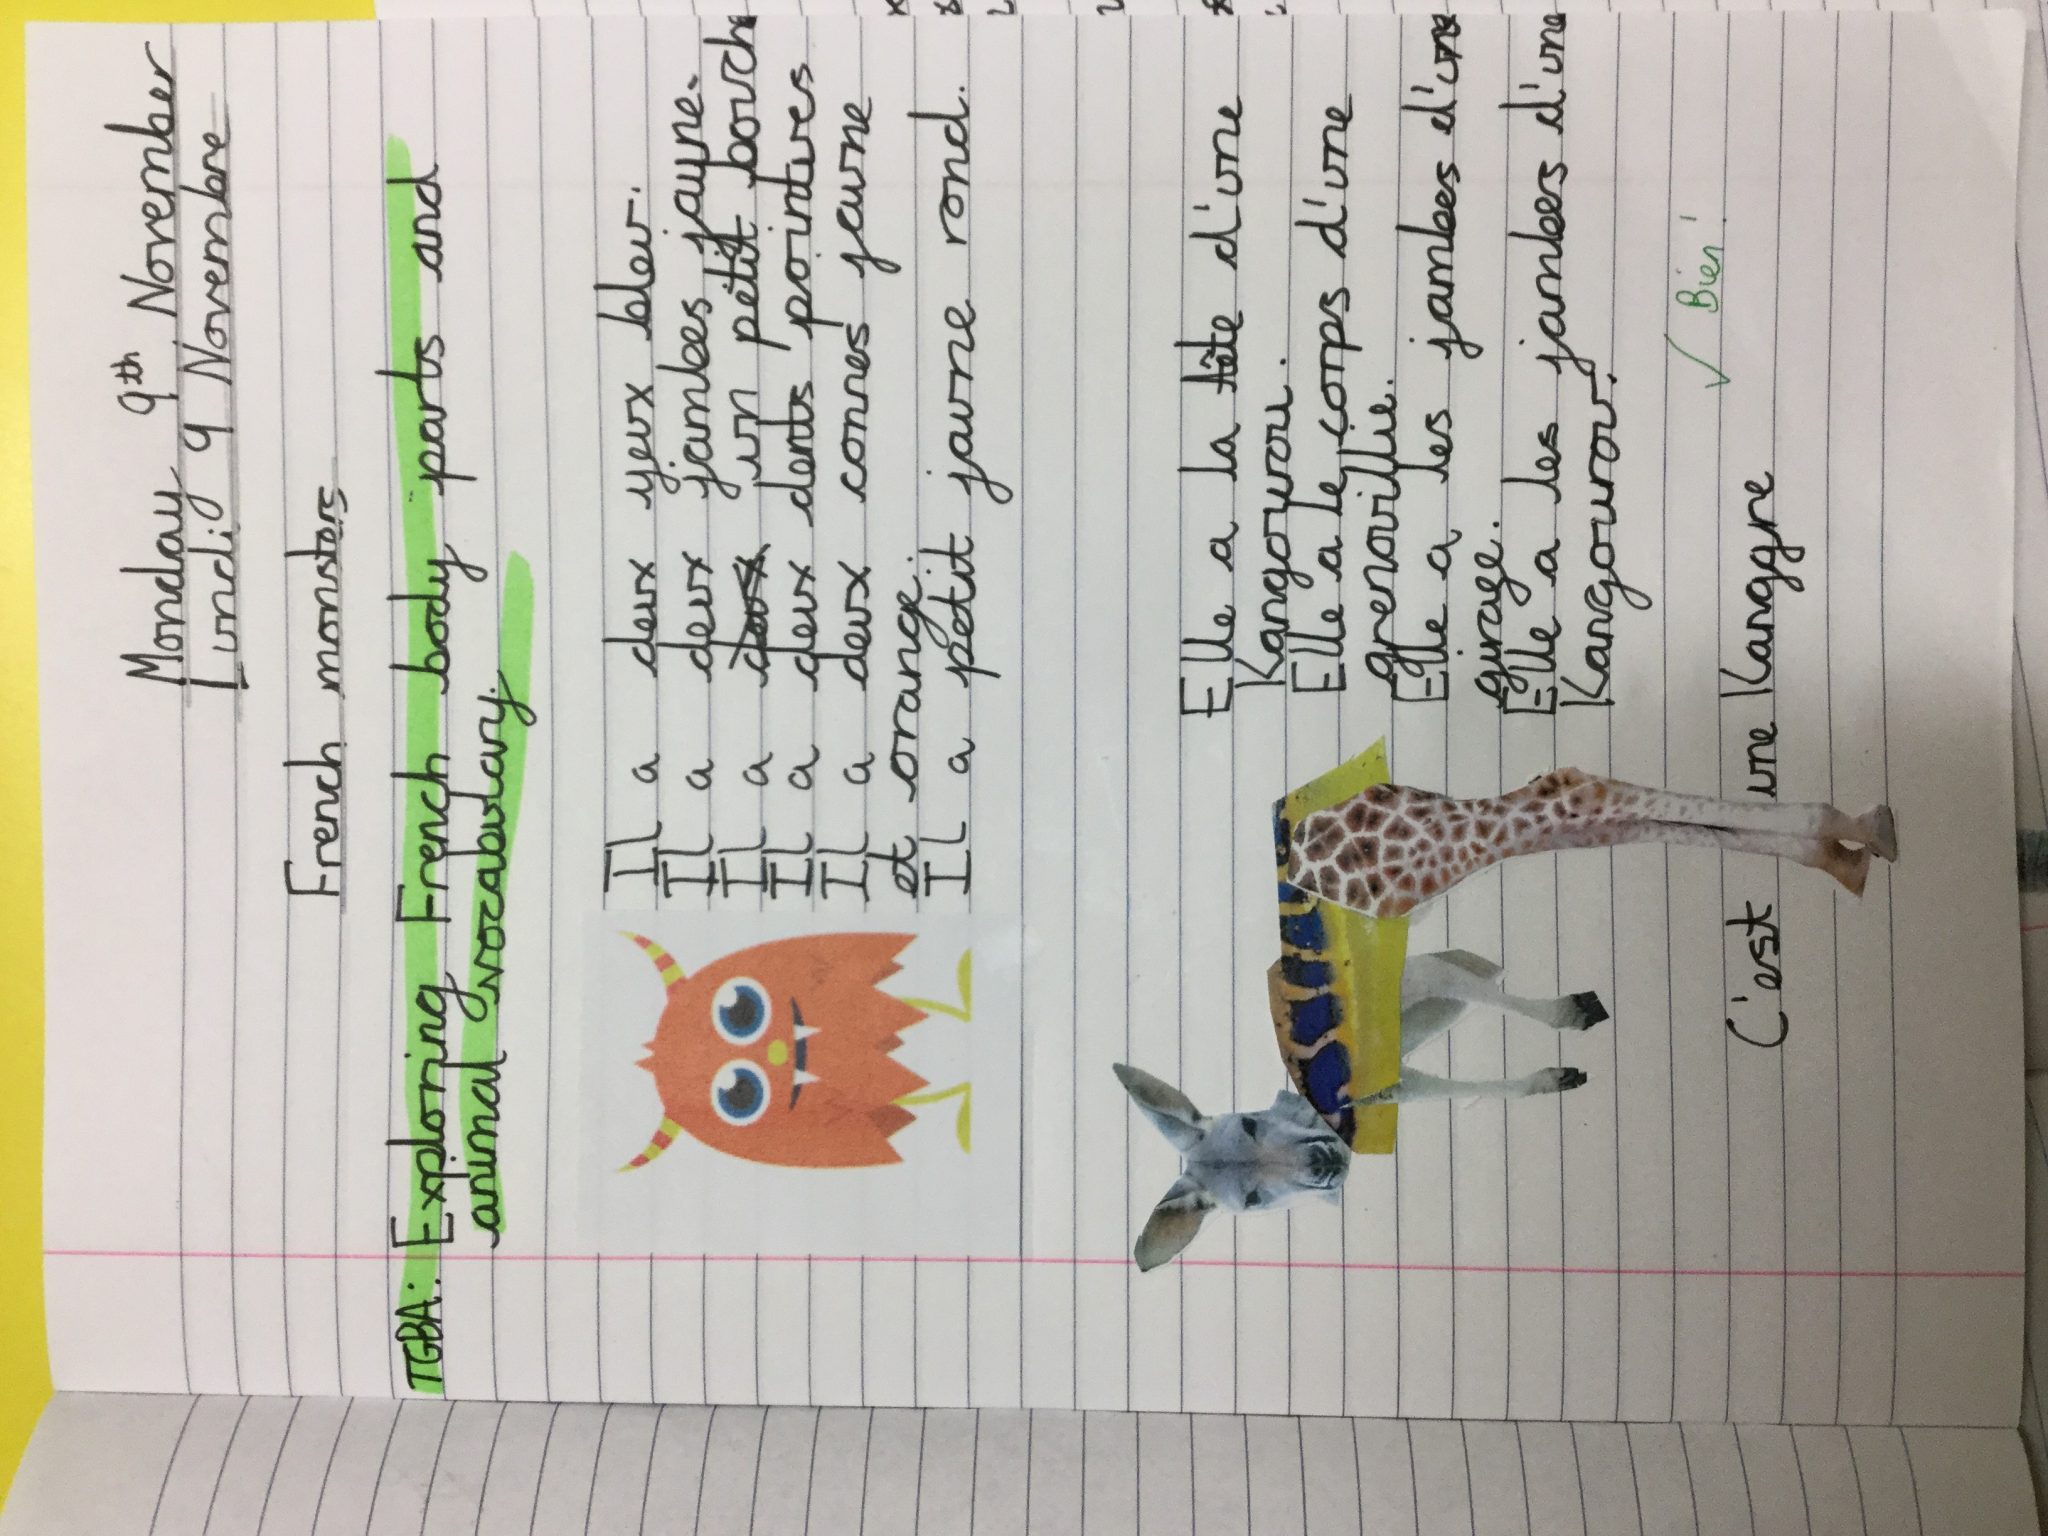 Monday 9th November
Lundi 9 Novembre
French monsters
TGBA: Exploring French body parts and
animal vocabulary.
Il a deux yeux bleu.
Il a deux jambes jayne.
Il a un petit bouche
Il a deux dents pointures
Il a deux cornes jaune
et orange.
Il a petit jaune rond.
Elle a la tête d'une
Kangourou.
Elle a le corps d'une
grenouillie.
Elle a les jambes d'une
girage.
Elle a les jambes d'une
Kangourou.
✓ Bien!
C'est une Kanggre